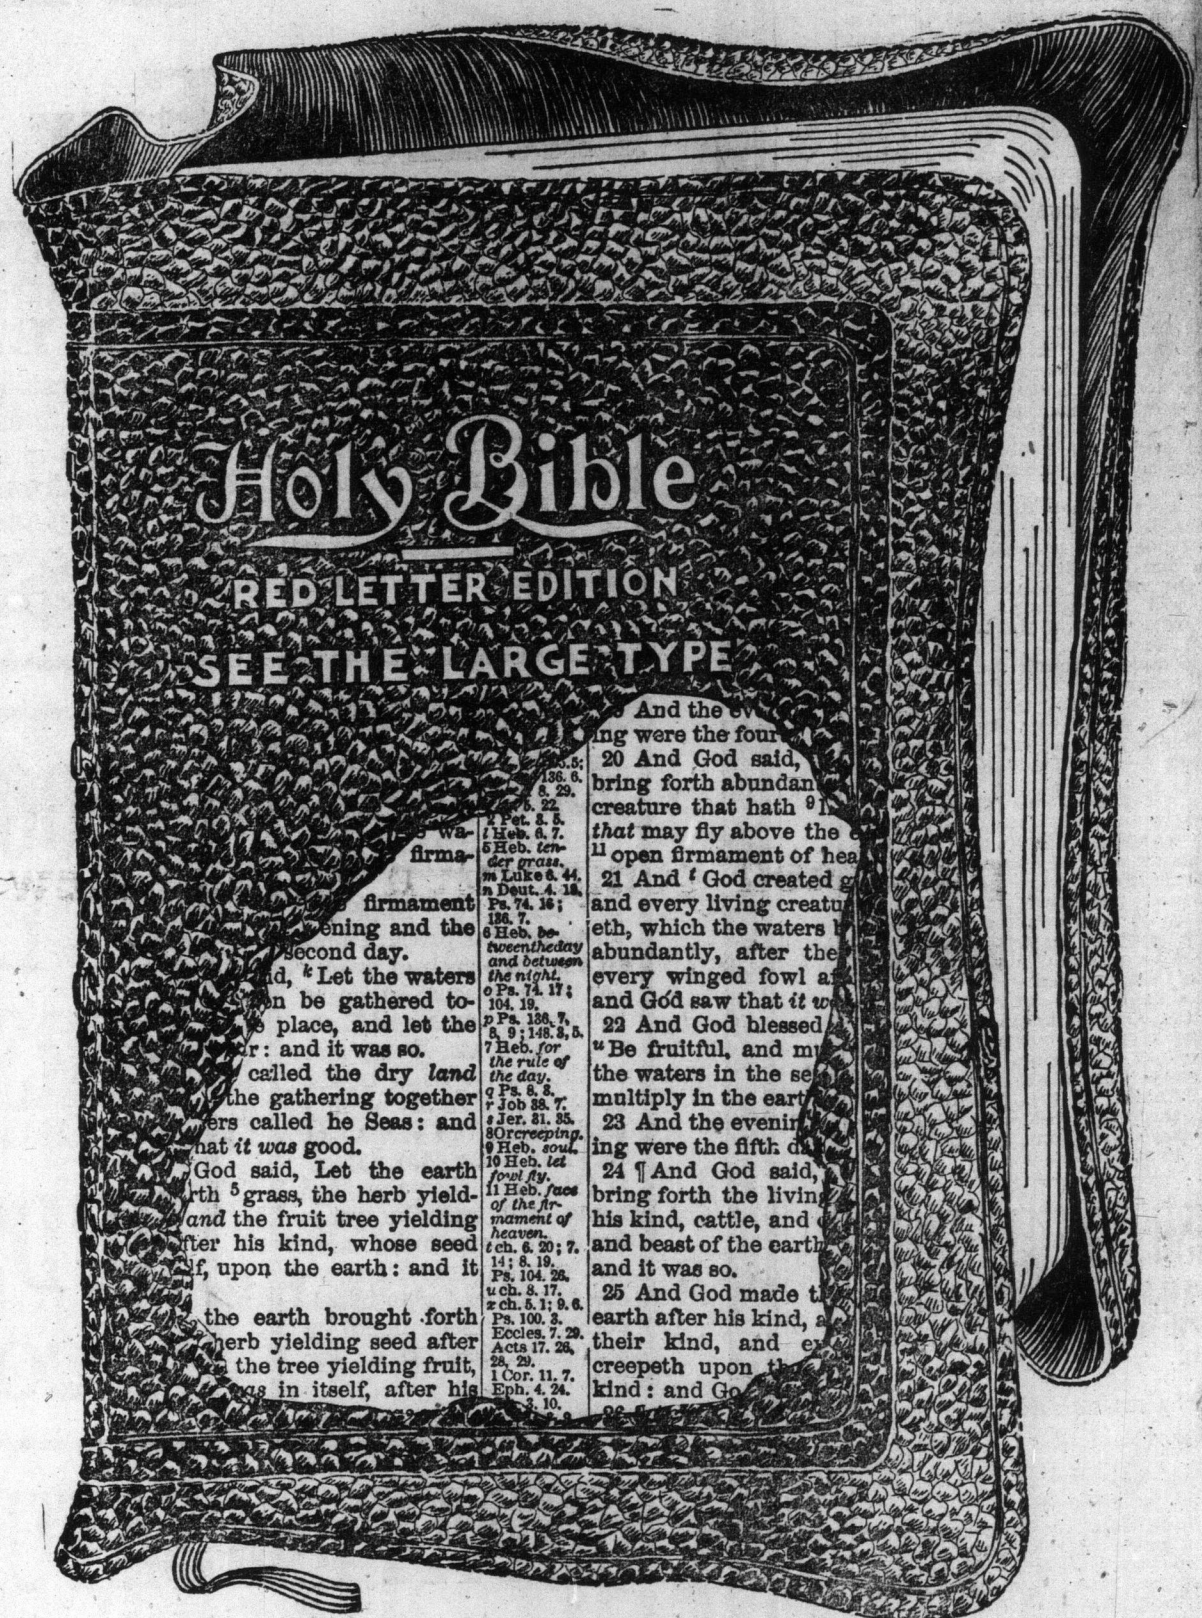 Holy Bible
RED LETTER EDITION
SEE THE LARGE TYPE
wa-
firma-
firmament
ening and the
second day.
id, k Let the waters
n be gathered to-
place, and let the
r: and it was so.
called the dry land
the gathering together
ers called he Seas: and
hat it was good.
God said, Let the earth
rth 5 grass, the herb yield-
and the fruit tree yielding
fter his kind, whose seed
lf, upon the earth: and it
the earth brought forth
herb yielding seed after
the tree yielding fruit,
was in itself, after his
.5;
136. 6.
8. 29.
5. 22.
2 Pet. 3. 5.
l Heb. 6. 7.
5 Heb. ten-
der grass.
m Luke 6. 44.
n Deut. 4. 19.
Ps. 74. 16;
136. 7.
6 Heb. be-
tween the day
and between
the night.
o Ps. 74. 17;
104. 19.
p Ps. 136. 7,
8, 9; 148. 3, 5.
7 Heb. for
the rule of
the day.
q Ps. 8. 3.
r Job 38. 7.
s Jer. 31. 35.
8 Or creeping.
9 Heb. soul.
10 Heb. let
fowl fly.
11 Heb. face
of the fir-
mament of
heaven.
t ch. 6. 20; 7.
14; 8. 19.
Ps. 104. 26.
u ch. 8. 17.
x ch. 5. 1; 9. 6.
Ps. 100. 3.
Eccles. 7. 29.
Acts 17. 26,
28, 29.
1 Cor. 11. 7.
Eph. 4. 24.
3. 10.
And the ev
ing were the four
20 And God said,
bring forth abundan
creature that hath 9 l
that may fly above the e
11 open firmament of hea
21 And t God created g
and every living creatu
eth, which the waters b
abundantly, after the
every winged fowl af
and God saw that it w
22 And God blessed
u Be fruitful, and mu
the waters in the se
multiply in the eart
23 And the evenin
ing were the fifth da
24 ¶ And God said,
bring forth the living
his kind, cattle, and c
and beast of the earth
and it was so.
25 And God made t
earth after his kind, a
their kind, and ev
creepeth upon the
kind: and Go